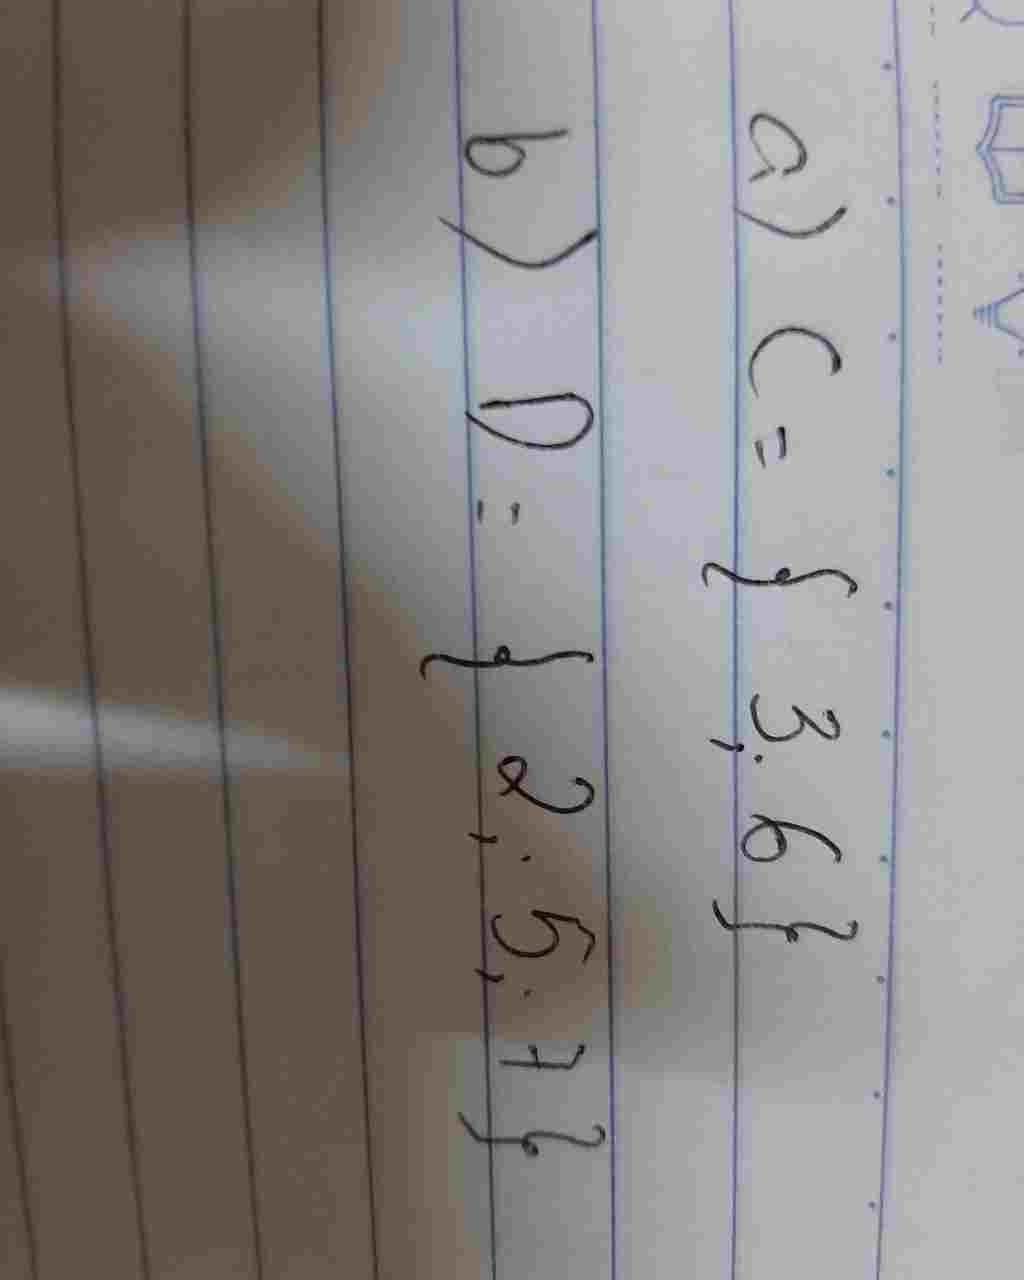 a) C = { 3; 6 }
b) D = { 2; 5; 7 }